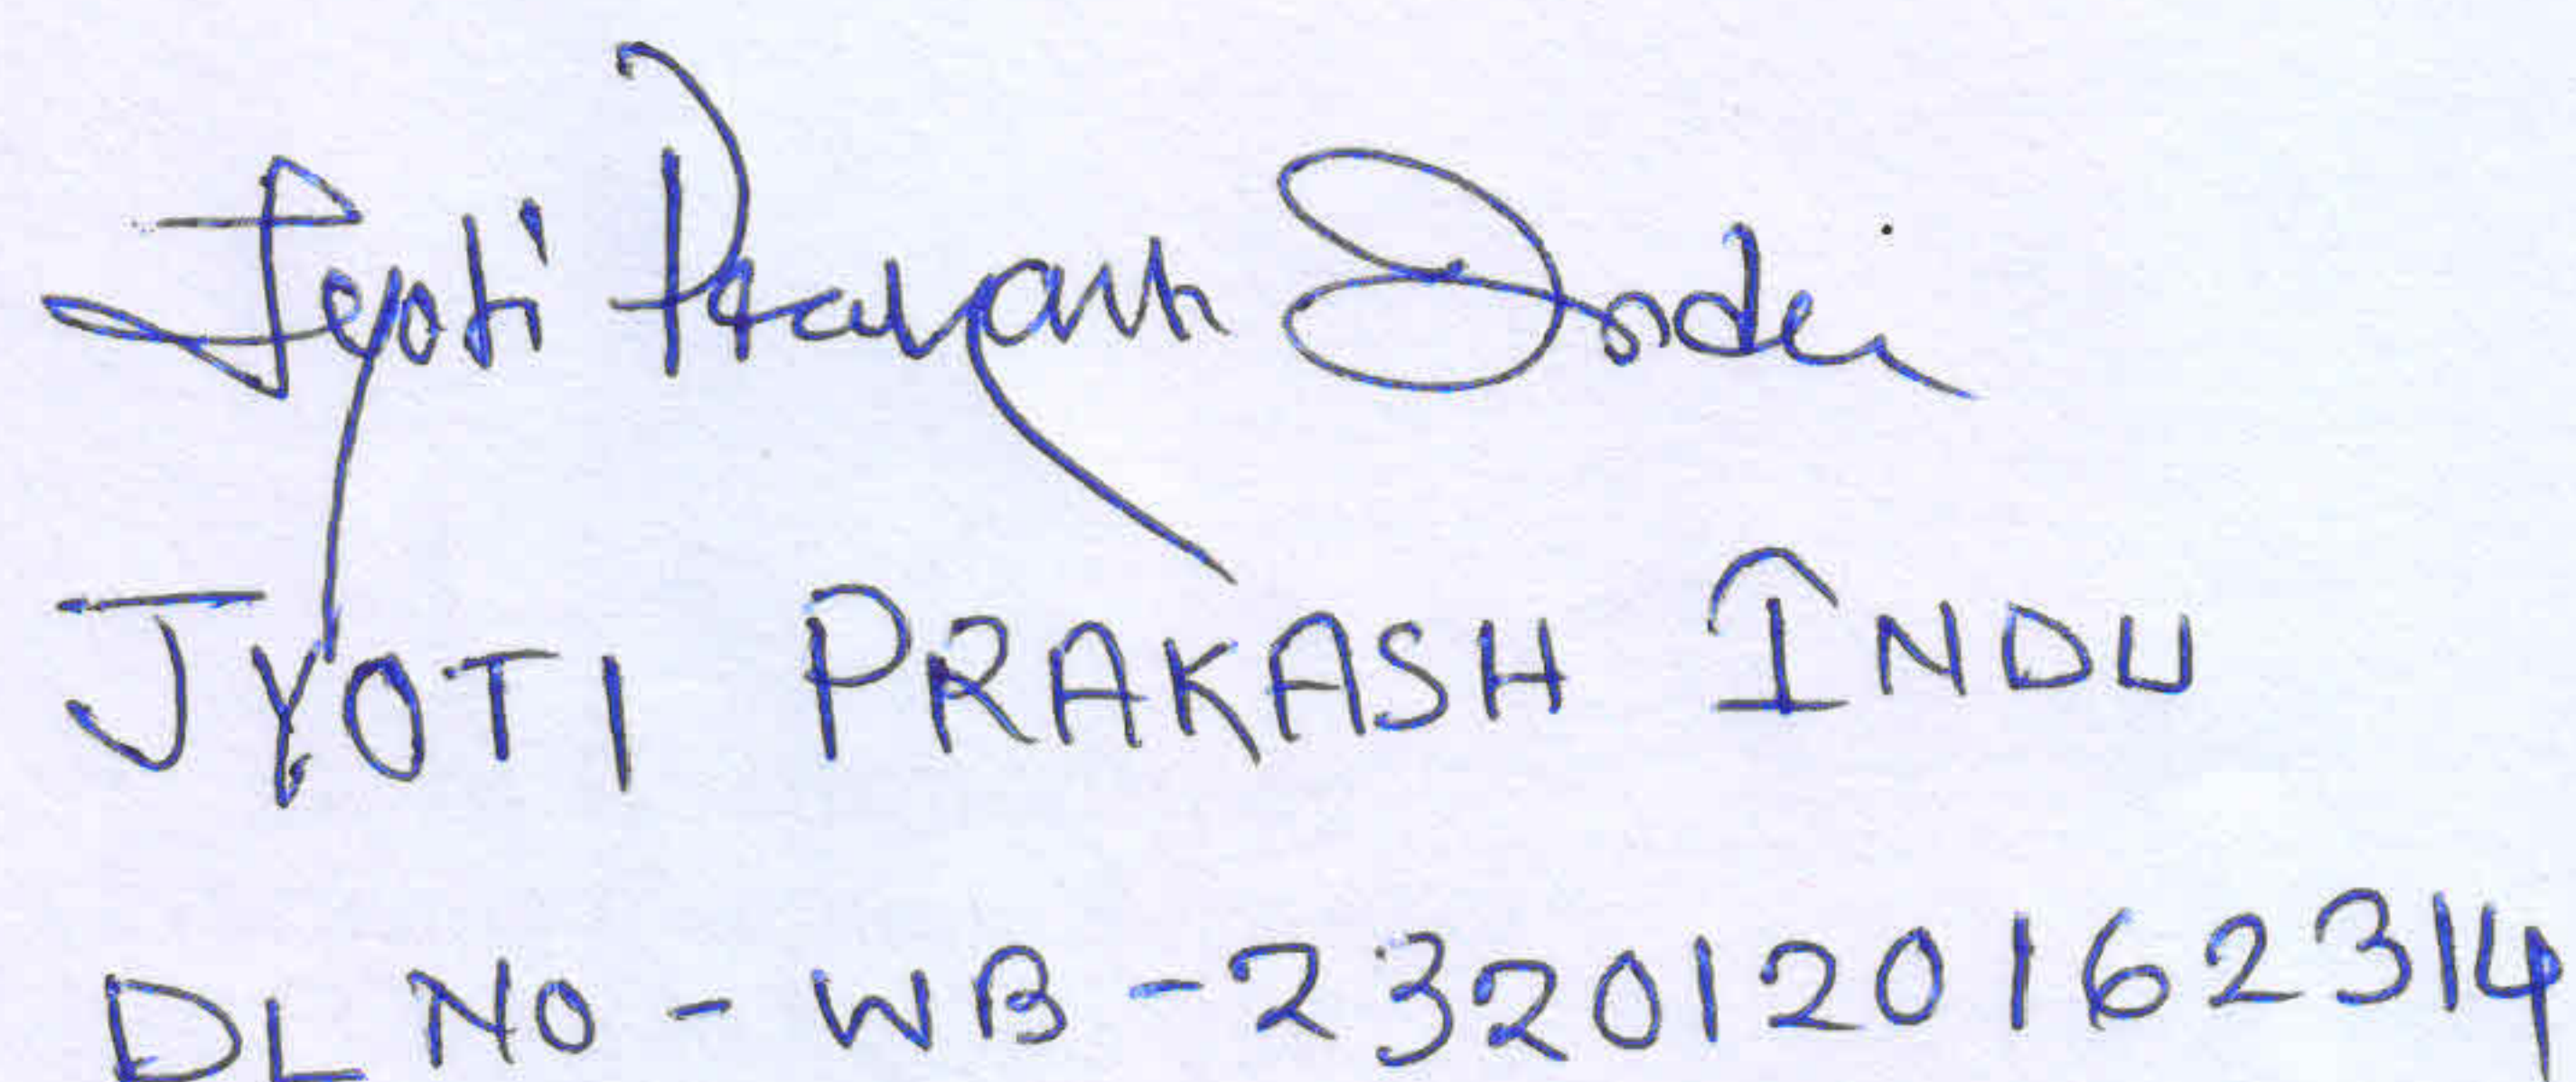 Jyoti Prakash Indu
JYOTI PRAKASH INDU
DL NO - WB - 2320120162314